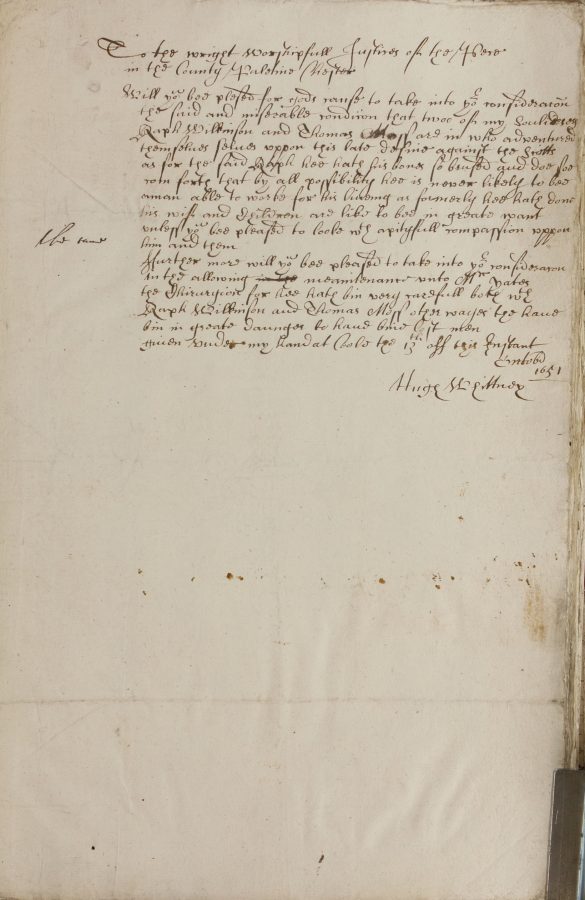 To the wright Worshipfull Justices of the Peece
in the County Paletine Chester
Will yo bee plesed for gods cause to take into yor consideracon
the said and miserable condition that twoo of my Souldeers
Raph Wilkinson and Thomas Moss are in who adventured
themselves selves uppon this late desine against the Scotts
as for the said Raph hee hath his bones so brused and doe soe
com forth that by all possibility hee is never likely to bee
aman able to worke for his liveing as formerly hee hath done
his wife and Children are like to bee in greate want
unless yo bee pleased to looke wth apityfull compassion uppon
him and them
the same
ffurther more will yo bee pleased to take into yor consideracon
in the allowing meaintenance unto Mr Yates
the Chirurgion for hee hath bin very carefull both wth
Raph Wilkinson and Thomas Moss other wayes the have
bin in greate daunger to have bine lost men
given under my hand at the 13th off this Instant
Octobr
1651
Hugh Whittney